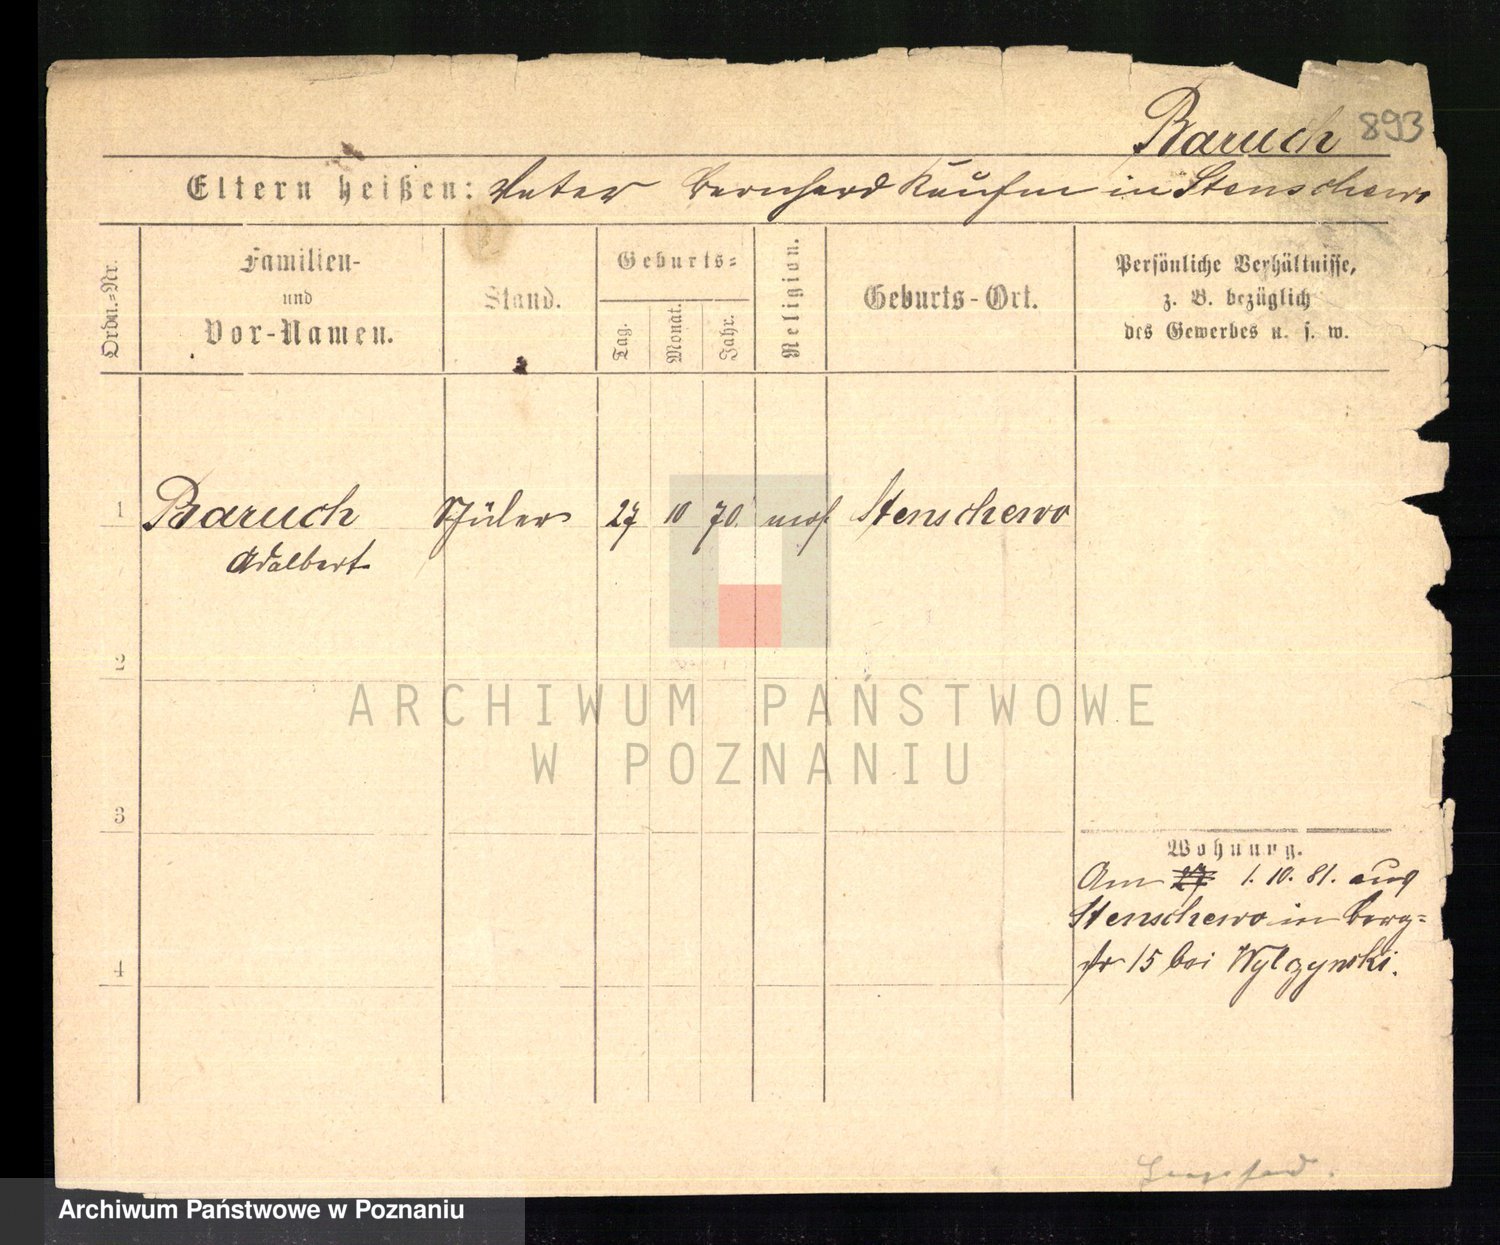 Baruch 893
Eltern heißen: Vater Bernhard Kaufm in Stenschewo
Ordn.=Nr.
Familien-
und
Vor-Namen.
Stand.
Geburts=
Tag.
Monat.
Jahr.
Religion.
Geburts-Ort.
Persönliche Verhältnisse,
z. B. bezüglich
des Gewerbes u. s. w.
1 Baruch Schüler 27 10 70. mos. Stenschewo
Adalbert
2
ARCHIWUM PAŃSTWOWE
W POZNANIU
3
Wohnung.
Am 27 1. 10. 81. aus
Stenschewo in Berg=
4
str 15 bei
Archiwum Państwowe w Poznaniu